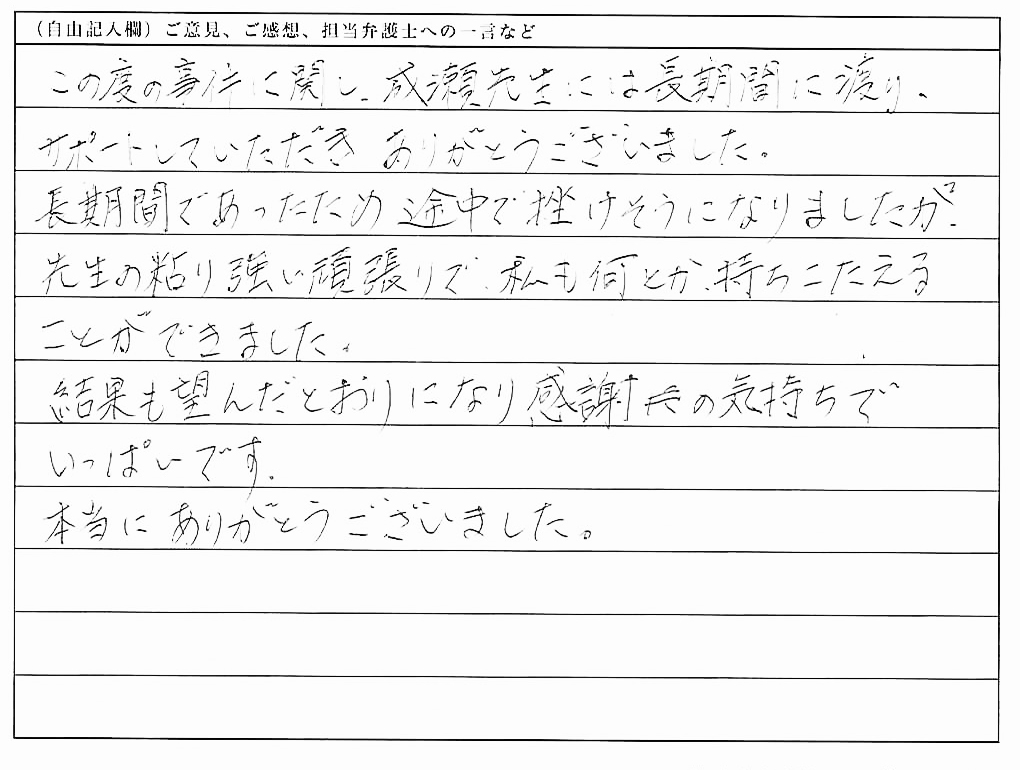 （自由記入欄）ご意見、ご感想、担当弁護士への一言など
この度の事件に関し、成瀬先生には長期間に渡り、
サポートしていただき ありがとうございました。
長期間であったため 途中で挫けそうになりましたが、
先生の粘り強い頑張りで、私も何とか、持ちこたえる
ことができました。
結果も望んだとおりになり感謝の気持ちで
いっぱいです。
本当に ありがとうございました。